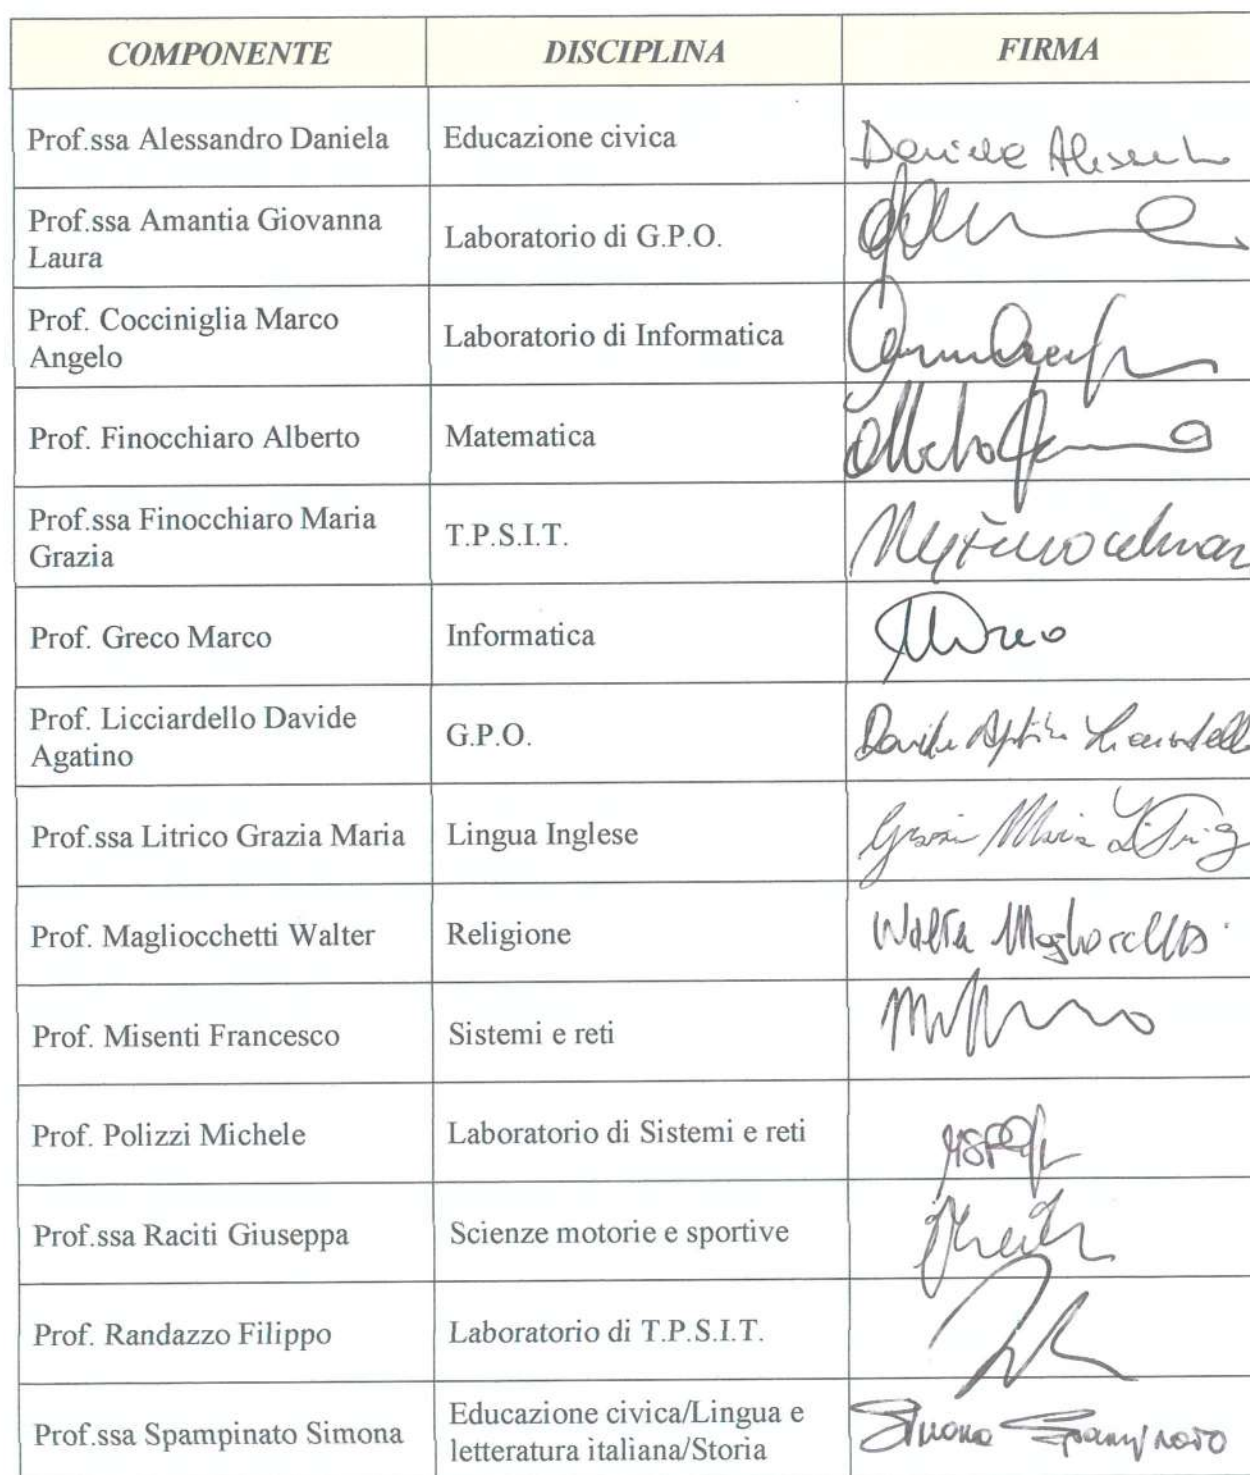 COMPONENTE DISCIPLINA FIRMA
Prof.ssa Alessandro Daniela Educazione civica
Prof.ssa Amantia Giovanna
Laura Laboratorio di G.P.O.
Prof. Cocciniglia Marco
Angelo Laboratorio di Informatica
Prof. Finocchiaro Alberto Matematica
Prof.ssa Finocchiaro Maria
Grazia T.P.S.I.T.
Prof. Greco Marco Informatica
Prof. Licciardello Davide
Agatino G.P.O.
Prof.ssa Litrico Grazia Maria Lingua Inglese
Prof. Magliocchetti Walter Religione Walter
Prof. Misenti Francesco Sistemi e reti
Prof. Polizzi Michele Laboratorio di Sistemi e reti
Prof.ssa Raciti Giuseppa Scienze motorie e sportive
Prof. Randazzo Filippo Laboratorio di T.P.S.I.T.
Prof.ssa Spampinato Simona Educazione civica/Lingua e
letteratura italiana/Storia Simona Spampinato